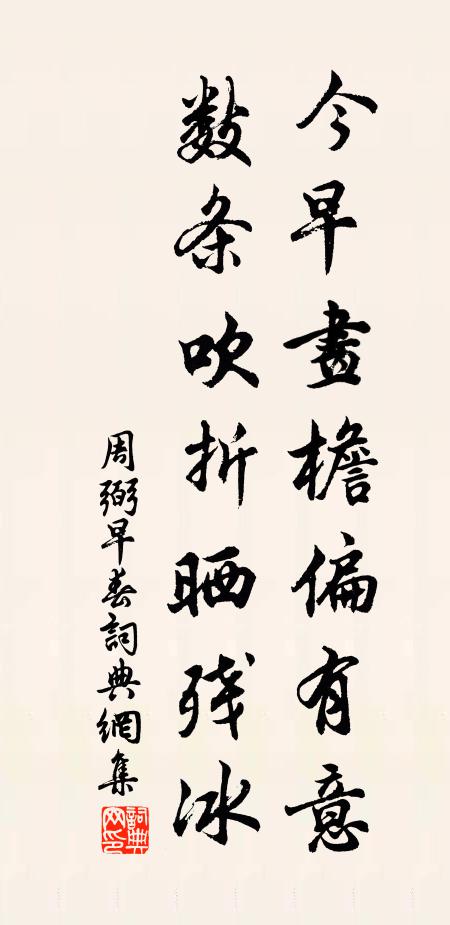 今早畫檐偏有意
数条吹折晒残冰
周弼早春詞典網集
詞典网印